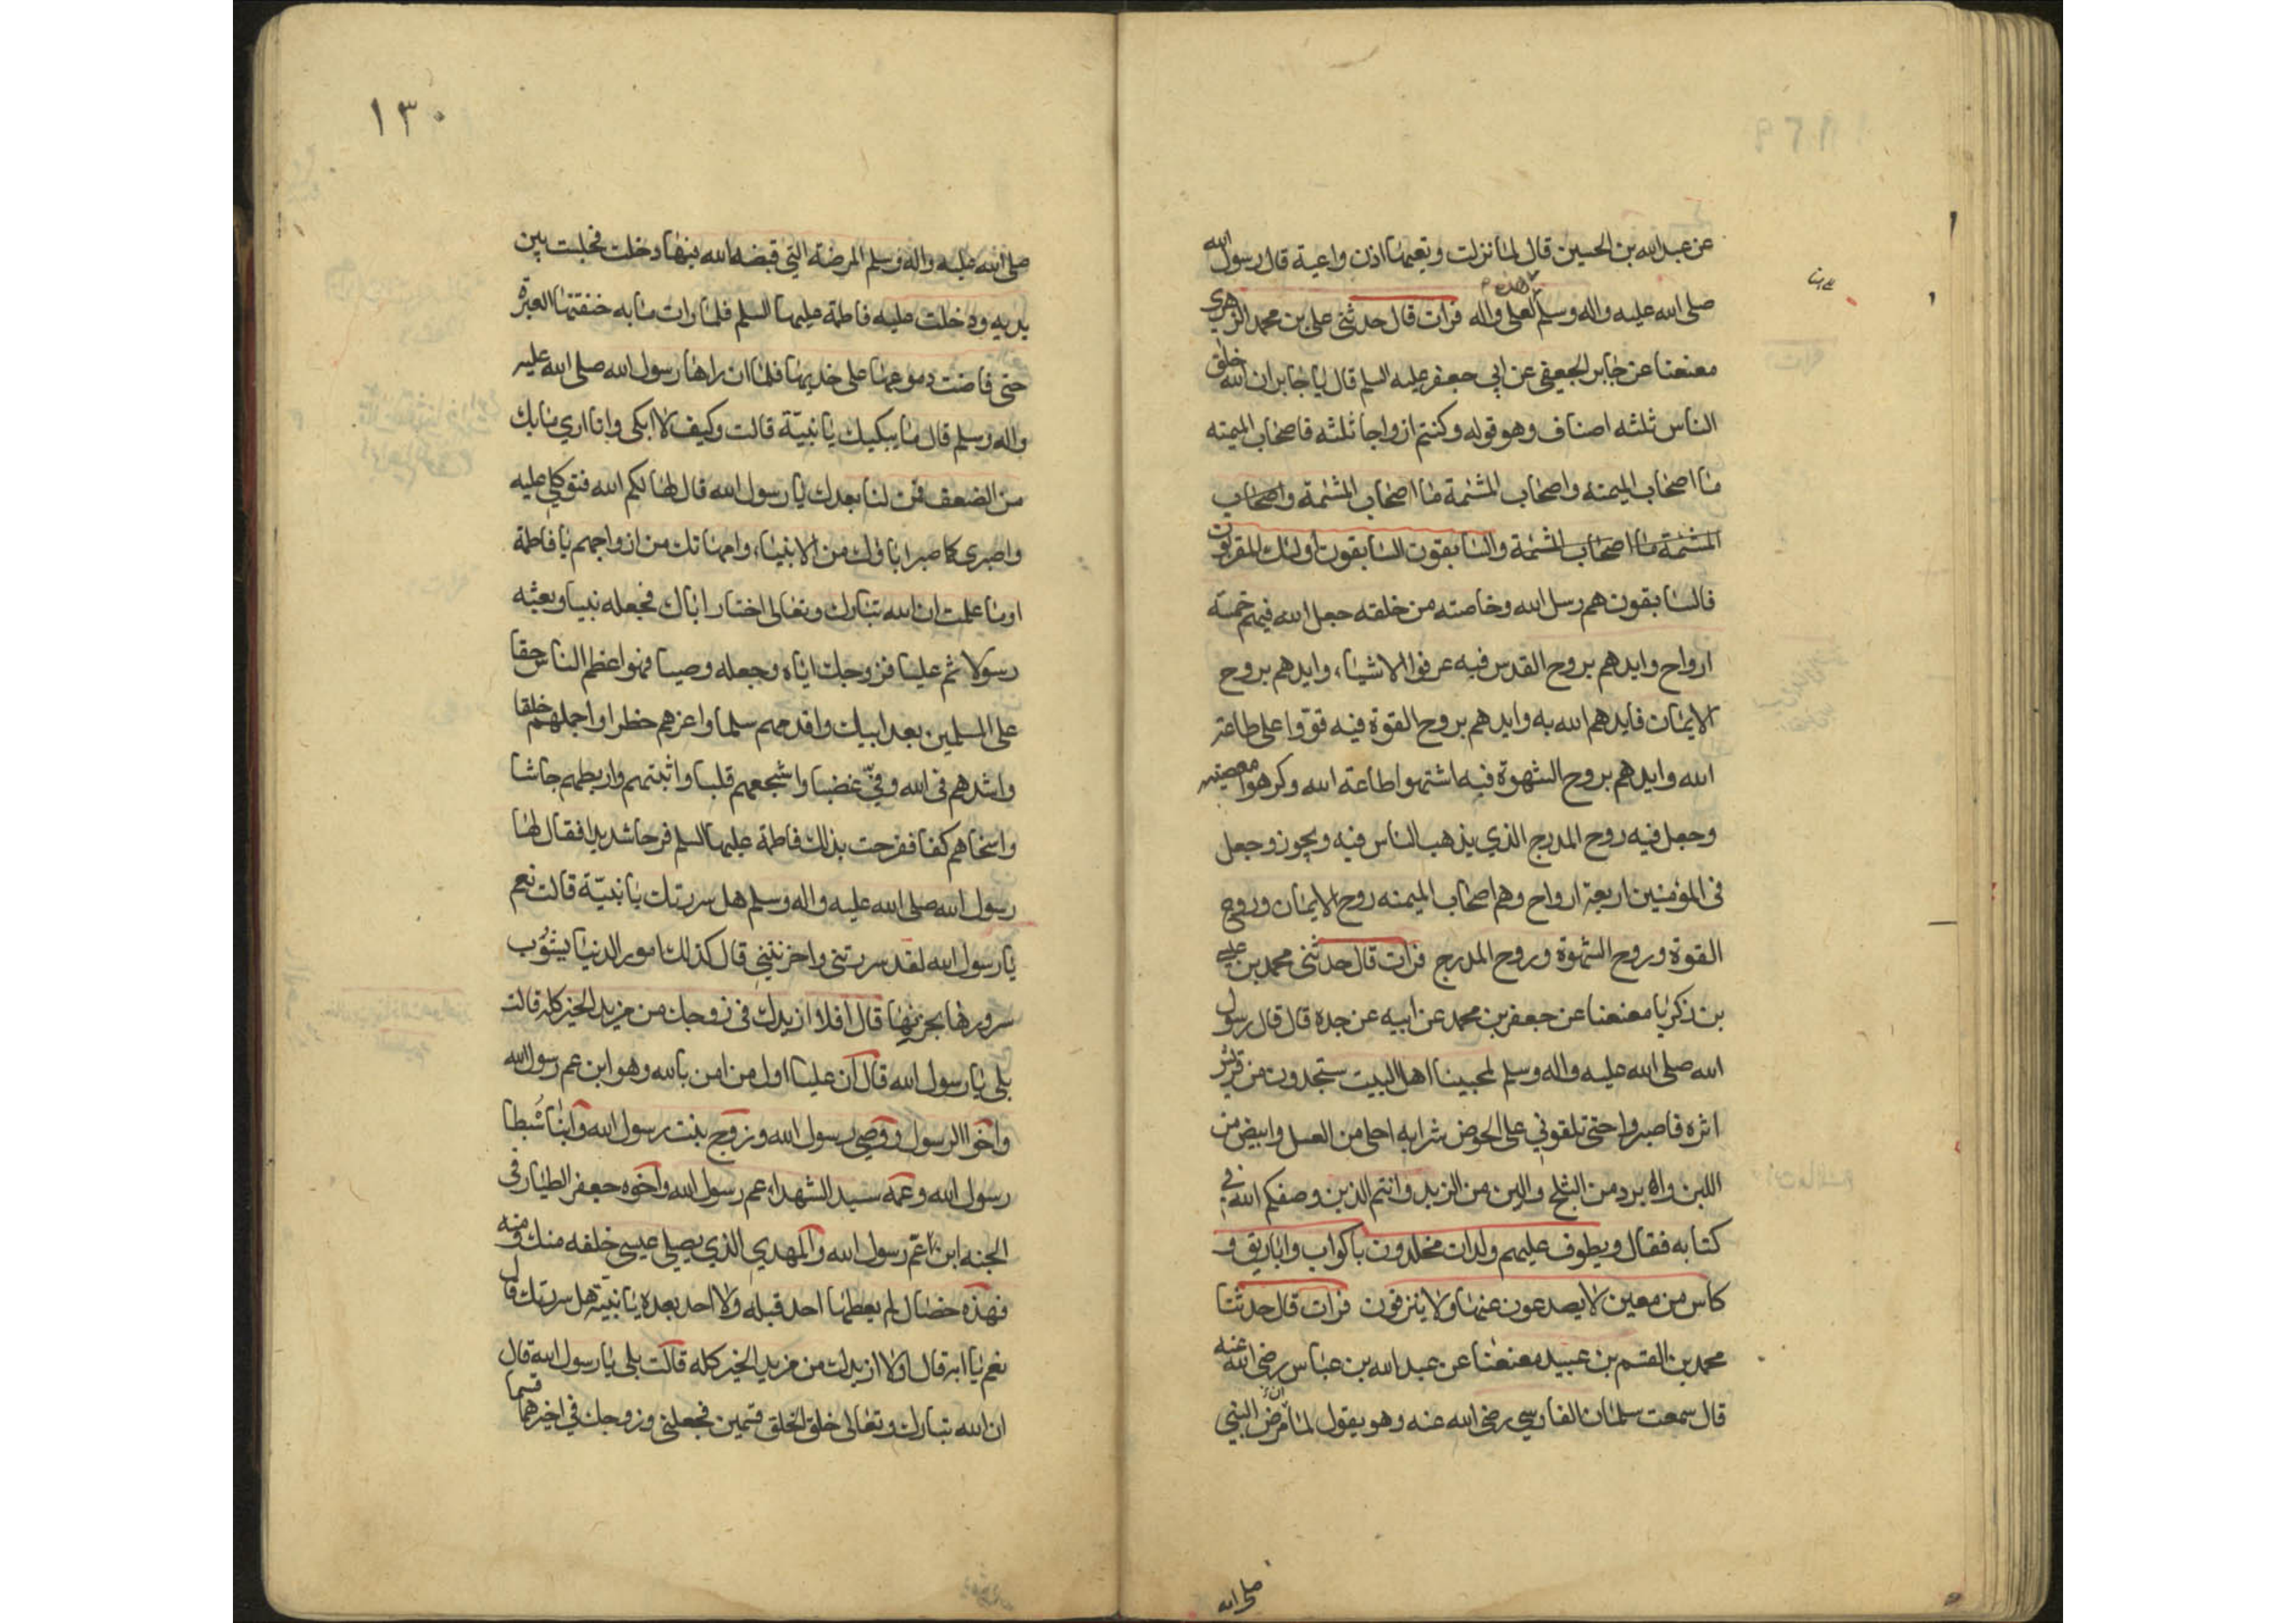 عن عبد الله بن الحسين قال لما نزلت وتعيها اذن واعية قال رسول الله
صلى الله عليه واله وسلم لعلى واله فرات قال حدثنى على بن محمد الزهري
معنعنا عن جابر الجعفي عن ابي جعفر عليه السلم قال يا جابر ان الله خلق
الناس ثلثه اصناف وهو قوله وكنتم ازواجا ثلثه فاصحاب الميمنه
ما اصحاب الميمنه واصحاب المشئمة ما اصحاب المشئمة واصحاب
المشئمة ما اصحاب المشئمة والسابقون السابقون اولئك المقربون
فالسابقون هم رسل الله وخاصته من خلقه جعل الله فيهم خمسة
ارواح وايدهم بروح القدس فبه عرفوا الاشياء وايدهم بروح
الايمان فايدهم الله به وايدهم بروح القوة فبه قووا على طاعة
الله وايدهم بروح الشهوة فبه اشتهوا طاعة الله وكرهوا معصيته
وجعل فيه روح المدرج الذي يذهب الناس فيه ويجون وجعل
فى المؤمنين اربعة ارواح وهم اصحاب الميمنه روح الايمان وروح
القوة وروح الشهوة وروح المدرج فرات قال حدثنى محمد بن
بن زكريا معنعنا عن جعفر بن محمد عن ابيه عن جده قال قال رسول
الله صلى الله عليه واله وسلم لمحبينا اهل البيت ستجدون من قريش
اثره فاصبروا حتى تلقوني على الحوض شرابه احلى من العسل وابيض من
اللبن وابرد من الثلج والين من الزبد وانتم الذين وصفكم الله في
كتابه فقال ويطوف عليهم ولدان مخلدون باكواب واباريق و
كاس من معين لا يصدعون عنها ولا ينزفون فرات قال حدثنا
محمد بن القسم بن عبيد معنعنا عن عبد الله بن عباس رضى الله عنه
قال سمعت سلمان الفارسي رضى الله عنه وهو يقول لما ان مرض النبي
صلى الله
١٣٠
صلى الله عليه واله وسلم المرضة التي قبضه الله فيها دخلت فجلست بين
يديه ودخلت عليه فاطمة عليها السلم فلما رات ما به خنقتها العبرة
حتى فاضت دموعها على خديها فلما ان راها رسول الله صلى الله عليه
واله وسلم قال ما يبكيك يا بنية قالت وكيف لا ابكى وانا ارى ما بك
من الضعف فمن لنا بعدك يا رسول الله قال لها لكم الله فتوكلي عليه
واصبرى كما صبر اباؤك من الانبياء وامهاتك من ازواجهم يا فاطمة
او ما علمت ان الله تبارك وتعالى اختار اباك فجعله نبيا وبعثه
رسولا ثم عليا فزوجك اياه وجعله وصيا فهو اعظم الناس حقا
على المسلمين بعد ابيك واقدمهم سلما واعزهم خطرا واجملهم خلقا
واشدهم فى الله وفيّ غضبا واشجعهم قلبا واثبتهم واربطهم جاشا
واسخاهم كفا ففرحت بذلك فاطمة عليها السلم فرحا شديدا فقال لها
رسول الله صلى الله عليه واله وسلم هل سررتك يا بنيّة قالت نعم
يا رسول الله لقد سررتنى واحزنتني قال كذلك امور الدنيا يشوب
سرورها بحزنها قال افلا ازيدك فى زوجك من مزيد الخير كله قالت
بلى يا رسول الله قال ان عليا اول من امن بالله وهو ابن عم رسول الله
واخو الرسول ووصي رسول الله وزوج بنت رسول الله وابناه سبطا
رسول الله وعمه سيد الشهداء عم رسول الله واخوه جعفر الطيار فى
الجنه ابن عم رسول الله والمهدي الذي يصلي عيسى خلفه منك ومنه
فهذه خصال لم يعطها احد قبله ولا احد بعده يا بنيّة هل سررتك قال
نعم يا ابه قال اولا ازيدك من مزيد الخير كله قالت بلى يا رسول الله قال
ان الله تبارك وتعالى خلق الخلق قسمين فجعلنى وزوجك في اخيرهما قسما